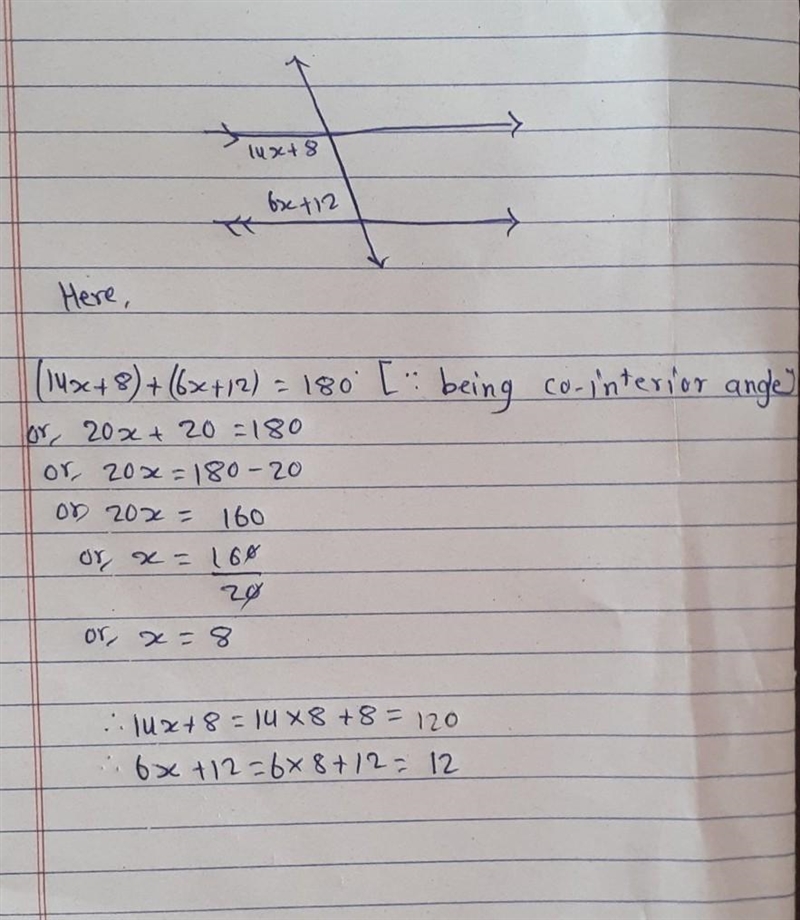 14x+8
6x+12
Here,
(14x+8)+(6x+12) = 180° [∵ being co-interior angle]
or, 20x + 20 = 180
or, 20x = 180 - 20
or 20x = 160
or, x = 160/20
or, x = 8
∴ 14x+8 = 14×8+8 = 120
∴ 6x+12 = 6×8+12 = 12